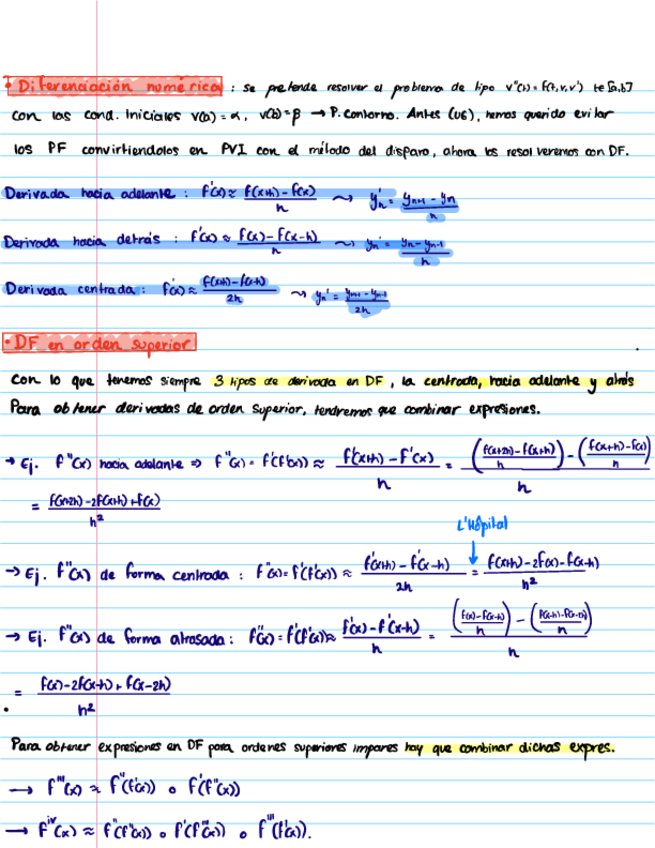 • Diferenciación numérica : se pretende resolver el problema de tipo v''(t) = f(t,v,v') t∈[a,b]
con las cond. Iniciales v(a) = α, v(b) = β → P. Contorno. Antes (U6), hemos querido evitar
los PF convirtiendolos en PVI con el método del disparo, ahora los resolveremos con DF.
Derivada hacia adelante : f'(x) ≈ (f(x+h) - f(x))/h ⇝ y'n = (yn+1 - yn)/h
Derivada hacia detrás : f'(x) ≈ (f(x) - f(x-h))/h ⇝ yn' = (yn - yn-1)/h
Derivada centrada : f'(x) ≈ (f(x+h) - f(x-h))/2h ⇝ yn' = (yn+1 - yn-1)/2h
• DF en orden superior
Con lo que tenemos siempre 3 tipos de derivada en DF, la centrada, hacia adelante y atrás
Para obtener derivadas de orden superior, tendremos que combinar expresiones.
→ Ej. f''(x) hacia adelante ⇒ f''(x) = f'(f'(x)) ≈ (f'(x+h) - f'(x))/h = ((f(x+2h) - f(x+h))/h) - ((f(x+h) - f(x))/h) / h
= (f(x+2h) - 2f(x+h) + f(x))/h²
L'Hôpital
→ Ej. f''(x) de forma centrada : f''(x) = f'(f'(x)) ≈ (f'(x+h) - f'(x-h))/2h = (f(x+h) - 2f(x) - f(x-h))/h²
→ Ej. f''(x) de forma atrasada : f''(x) = f'(f'(x)) ≈ (f'(x) - f'(x-h))/h = ((f(x) - f(x-h))/h) - ((f(x-h) - f(x-2h))/h) / h
= (f(x) - 2f(x-h) + f(x-2h))/h²
Para obtener expresiones en DF para ordenes superiores impares hay que combinar dichas expres.
→ f'''(x) ≈ f''(f'(x)) o f'(f''(x))
→ f^iv(x) ≈ f''(f''(x)) o f'(f'''(x)) o f'''(f'(x)).